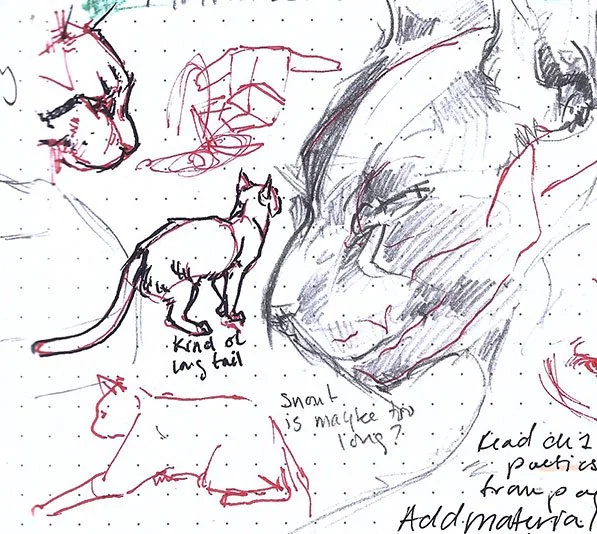 Kind of
long tail
Snout
is maybe too
long?
Read ch 1
poetics
from pa
Add material